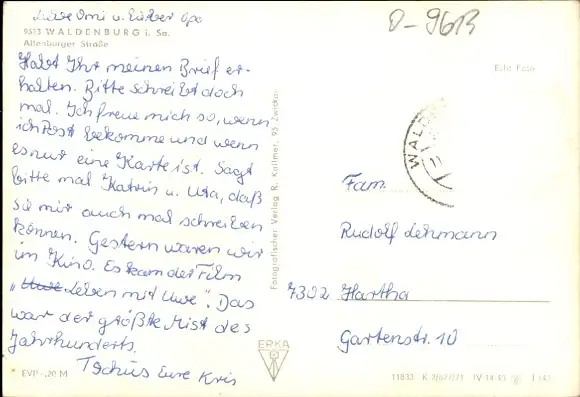 Liebe Omi u. lieber Opa
9613 WALDENBURG i. Sa.
Altenburger Straße
Habt Ihr meinen Brief er-
halten. Bitte schreibt doch
mal. Ich freue mich so, wenn
ich Post bekomme und wenn
es nur eine Karte ist. Sagt
bitte mal Katrin u. Uta, daß
sie mir auch mal schreiben
können. Gestern waren wir
im Kino. Es kam der Film
„Uwe Leben mit Uwe". Das
war der größte Mist des
Jahrhunderts.
Tschüs Eure Kris
EVP -,20 M
Fotografischer Verlag R. Kallmer, 95 Zwickau
ERKA
O-9613
Echt Foto
WALD
Fam.
Rudolf Lehmann
7302 Hartha
Gartenstr. 10
11833 K 3/677/71 IV-14-45 J 143